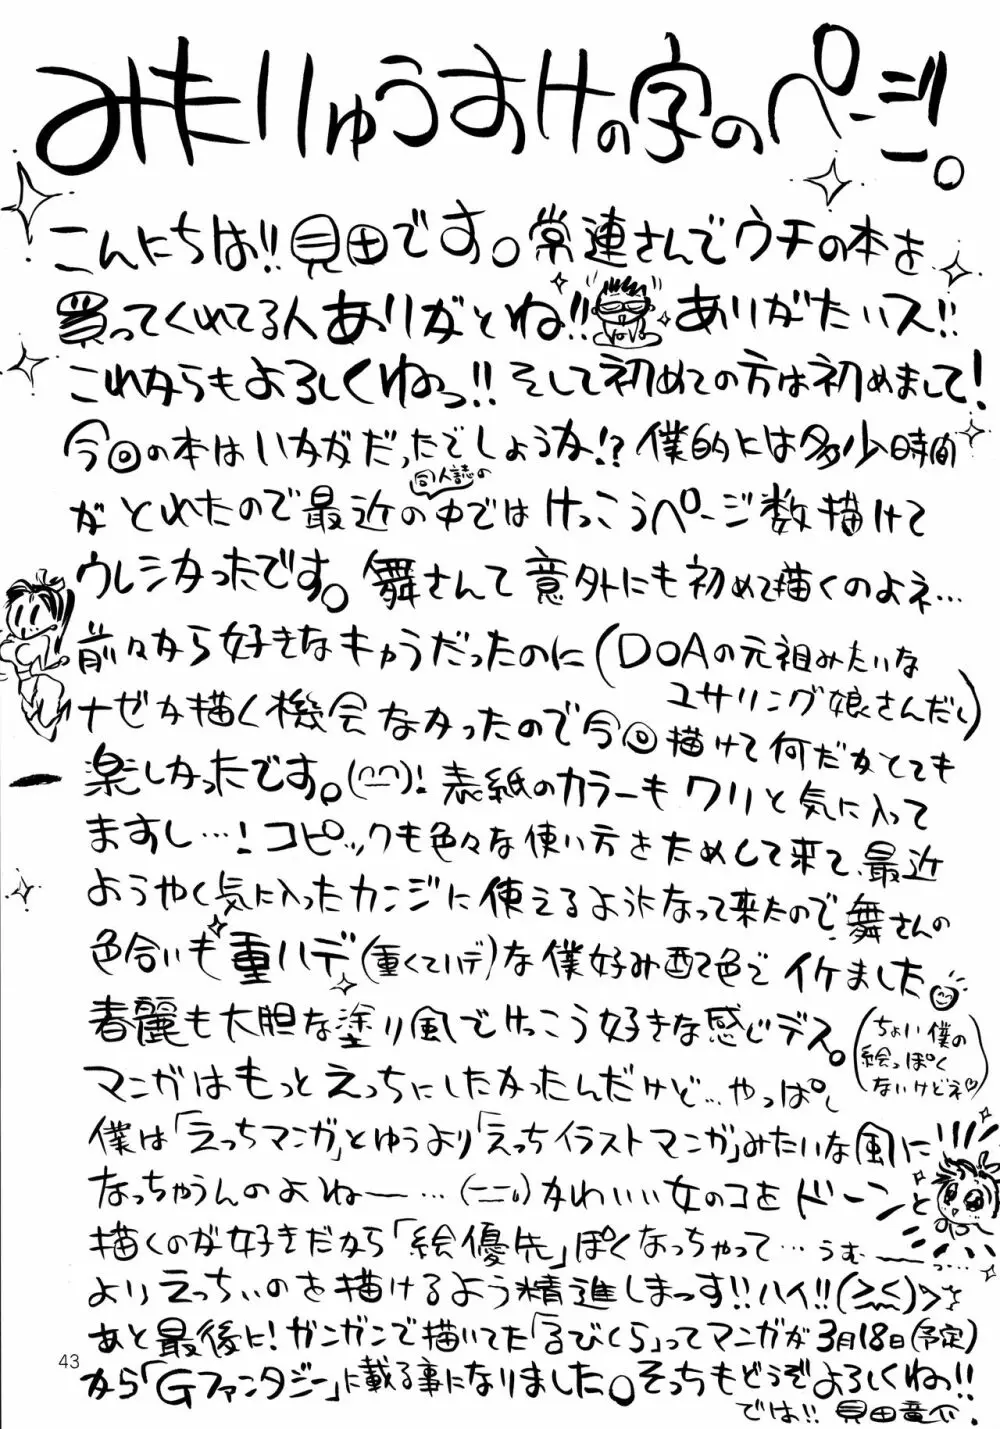 みたりゅうすけの字のページ。
こんにちは!!見田です。常連さんでウチの本を
買ってくれてる人ありがとね!!ありがたいス!!
これからもよろしくねっ!!そして初めての方は初めまして!
今回の本はいかがだったでしょうか!?僕的には多少時間
がとれたので最近の同人誌の中ではけっこうページ数描けて
ウレシかったです。舞さんて意外にも初めて描くのよネ…
前々から好きなキャラだったのに(DOAの元祖みたいな
ユサリング娘さんだし)
ナゼか描く機会なかったので今回描けて何だかとても
楽しかったです。(^^)!表紙のカラーもワリと気に入って
ますし…!コピックも色々な使い方をためして来て、最近
ようやく気に入ったカンジに使えるようになって来たので、舞さんの
色合いも重ハデ(重くてハデ)な僕好み配色でイケました。
春麗も大胆な塗り風でけっこう好きな感じデス。
(ちょい僕の
絵っぽく
ないけどネ♡)
マンガはもっとえっちにしたかったんだけど…やっぱし
僕は「えっちマンガ」とゆうより「えっちイラストマンガ」みたいな風に
なっちゃうんのよねー…(ーー;)かわいい女のコをドーンと
描くのが好きだから「絵優先」ぽくなっちゃって…うむー…
よりえっちぃのを描けるよう精進しまっす!!ハイ!!(><)ゞ
あと最後に!ガンガンで描いてた「るびくら」ってマンガが3月18日(予定)
から「Gファンタジー」に載る事になりました。そっちもどうぞよろしくねっ!!
では!!見田竜介.
43